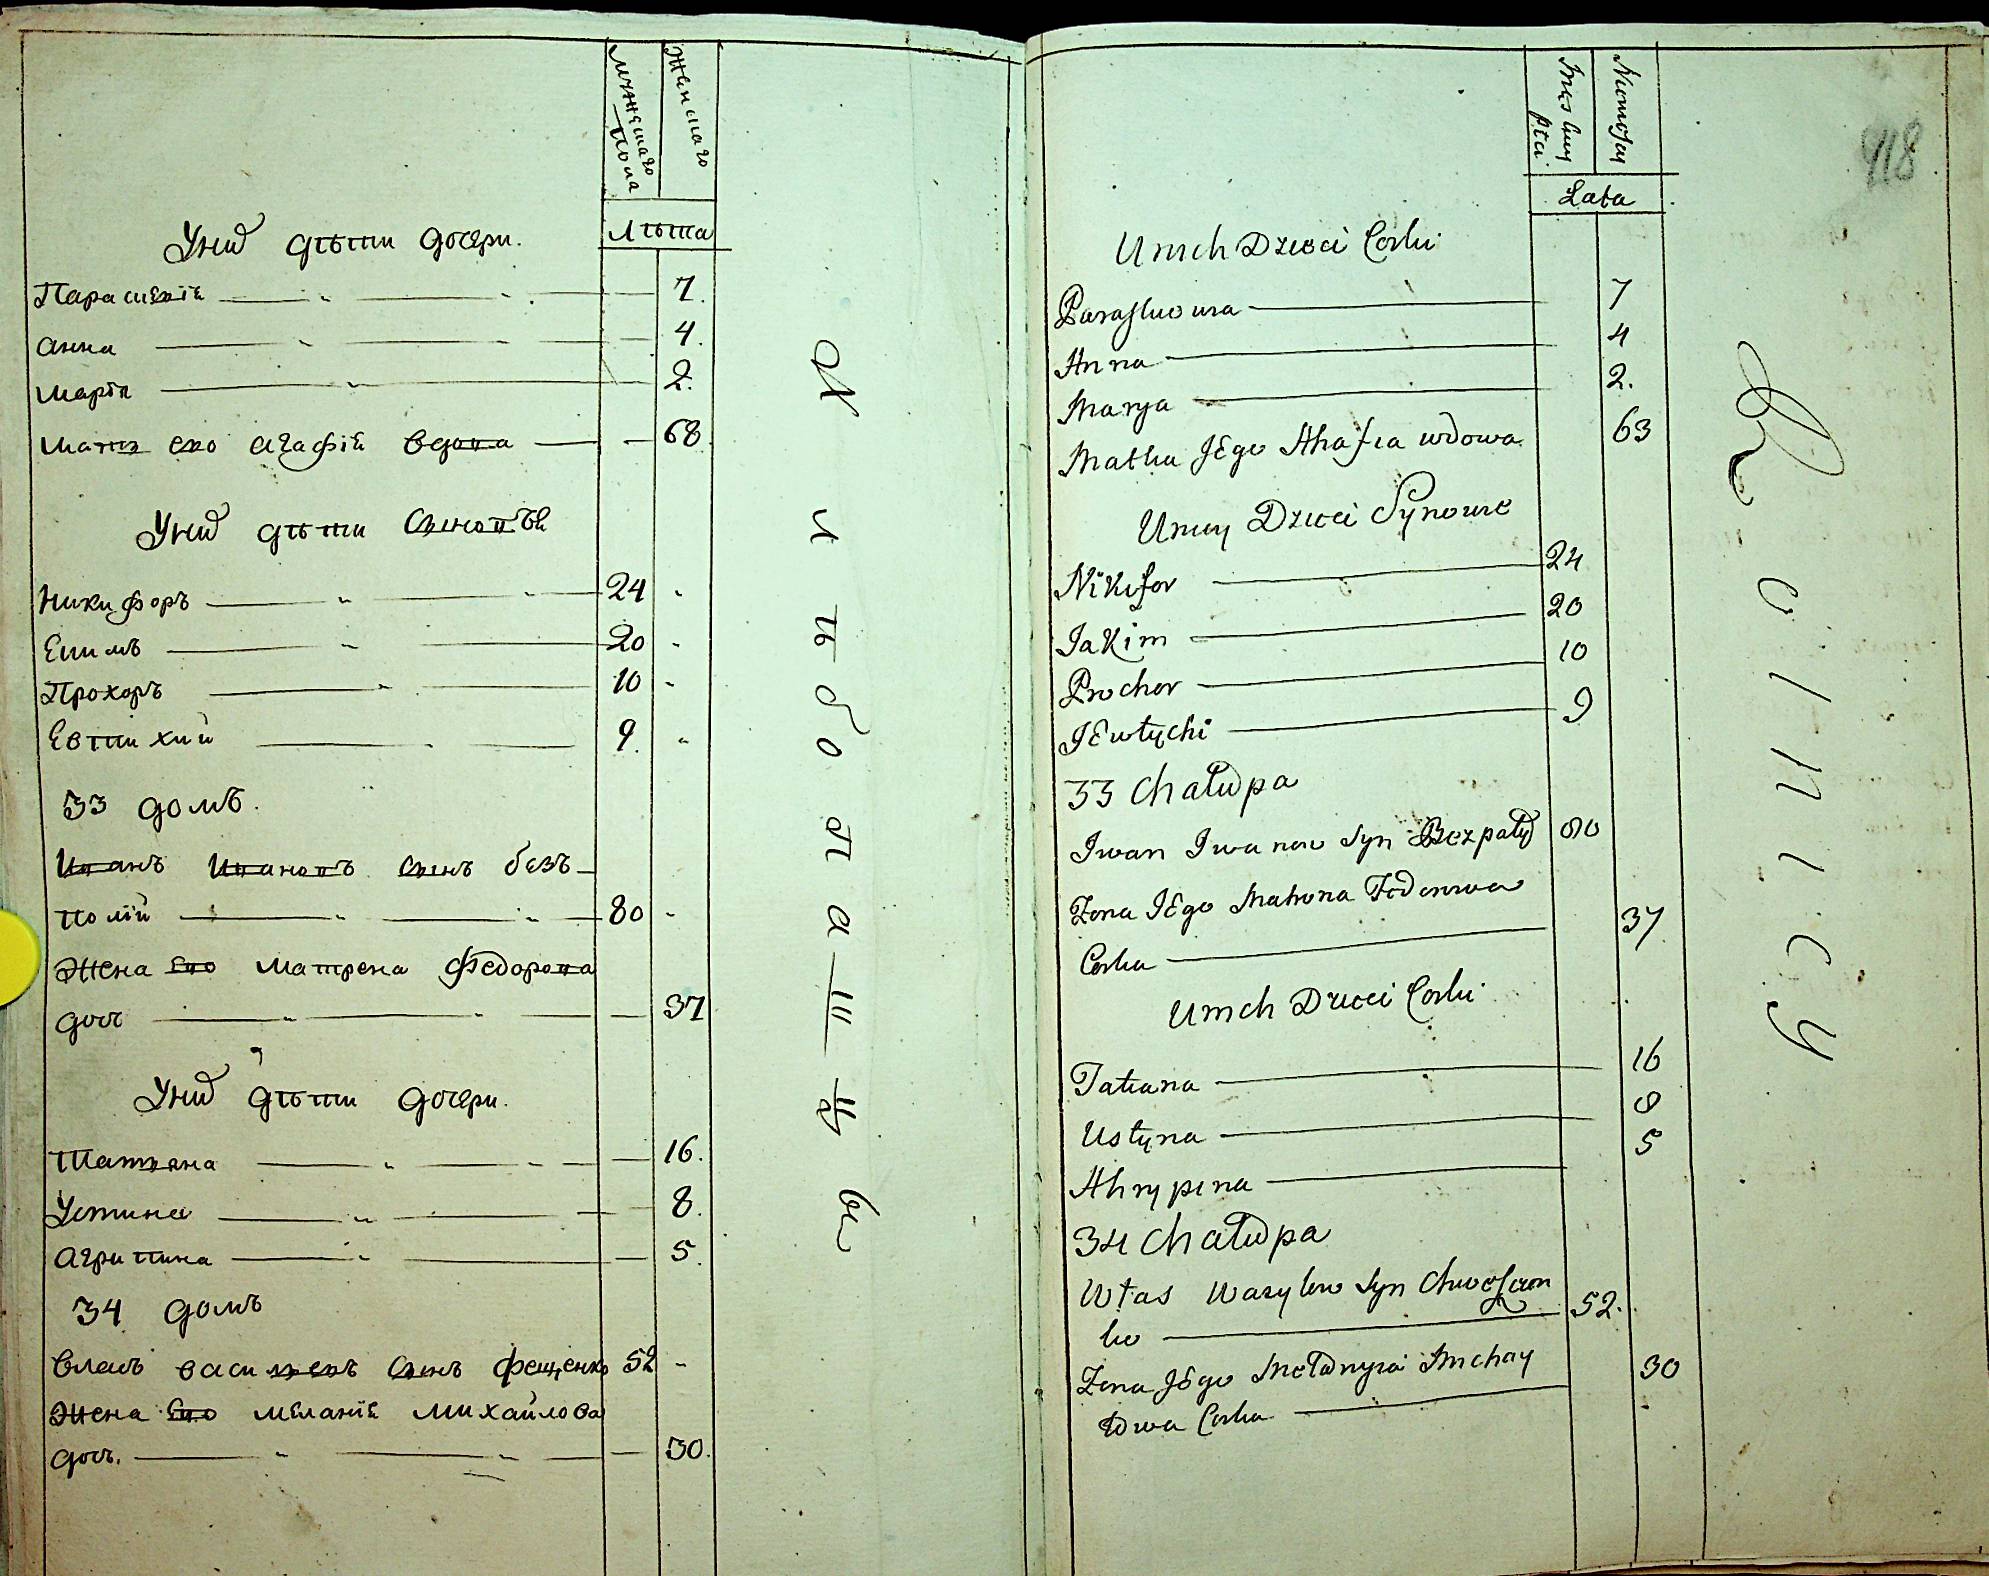 мужескаго пола
Женскаго
Лѣта
Унихъ дѣти дочери.
Параскевiя 7.
анна 4.
марiя 2.
мать его агафiя вдова 68
Унихъ дѣти сыновья
Никифоръ 24
Екимъ 20
Прохоръ 10
Евтихий 9.
33 домъ.
Иванъ Ивановъ сынъ безъ-
полiй 80
Жена его матрена Федорова
дочь 37
Унихъ дѣти дочери.
Татьяна 16.
Устина 8.
агрипина 5.
34 домъ
Власъ васильевъ сынъ фещенко 52
Жена его меланiя михайлова
дочь. 30.
Хлѣбопашцы
418
Męskiey Płci
Lata
Unich Dzieci Corki
7
Anna 4
Marya 2.
Matka Jego Ahafia wdowa 63
Unich Dzieci Synowie
Nikifor 24
Jakim 20
Prochor 10
Jewtychi 9
33 Chałupa
Iwan Iwanow Syn Bezpały 80
Zona Jego Matrona Fedorowa
Corka 37
Unich Dzieci Corki
Tatiana 16
Ustyna 8
Ahrypina 5
34 Chałupa
Włas Wasylow Syn Chweszczen
ko 52.
Zona Jego Mełanyia Michay
łowa Corka 30
Rolnicy